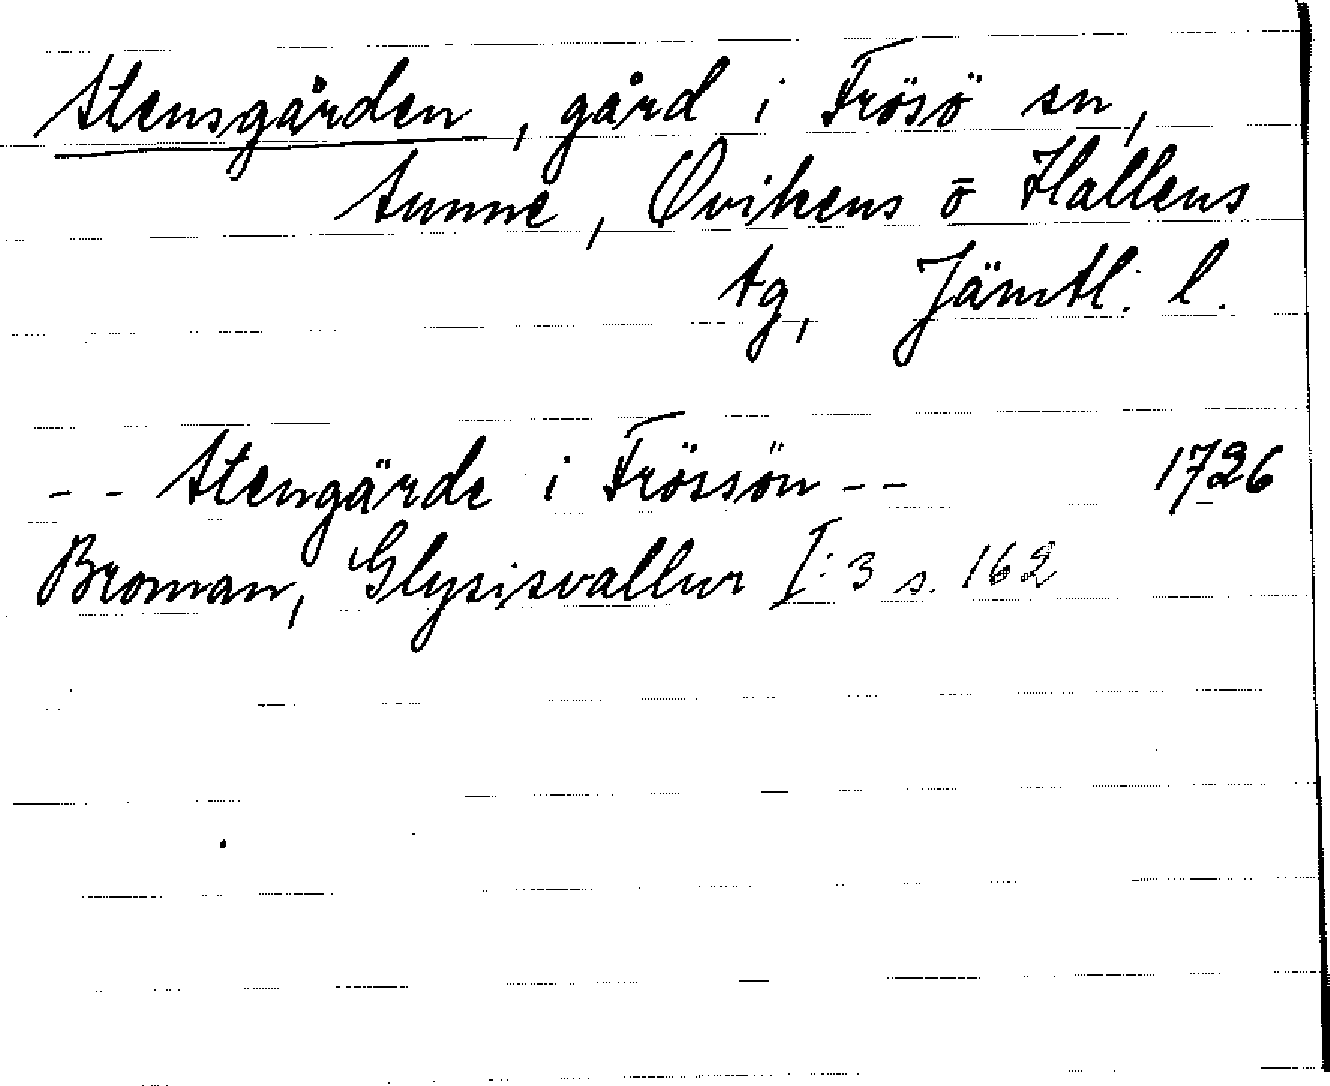 Stensgården, gård i Frösö sn,
Sunne, Ovikens o Hallens
tg, Jämtl. l.
-- Stengärde i Frössön -- 1726
Broman, Glysisvallur I:3 s. 162